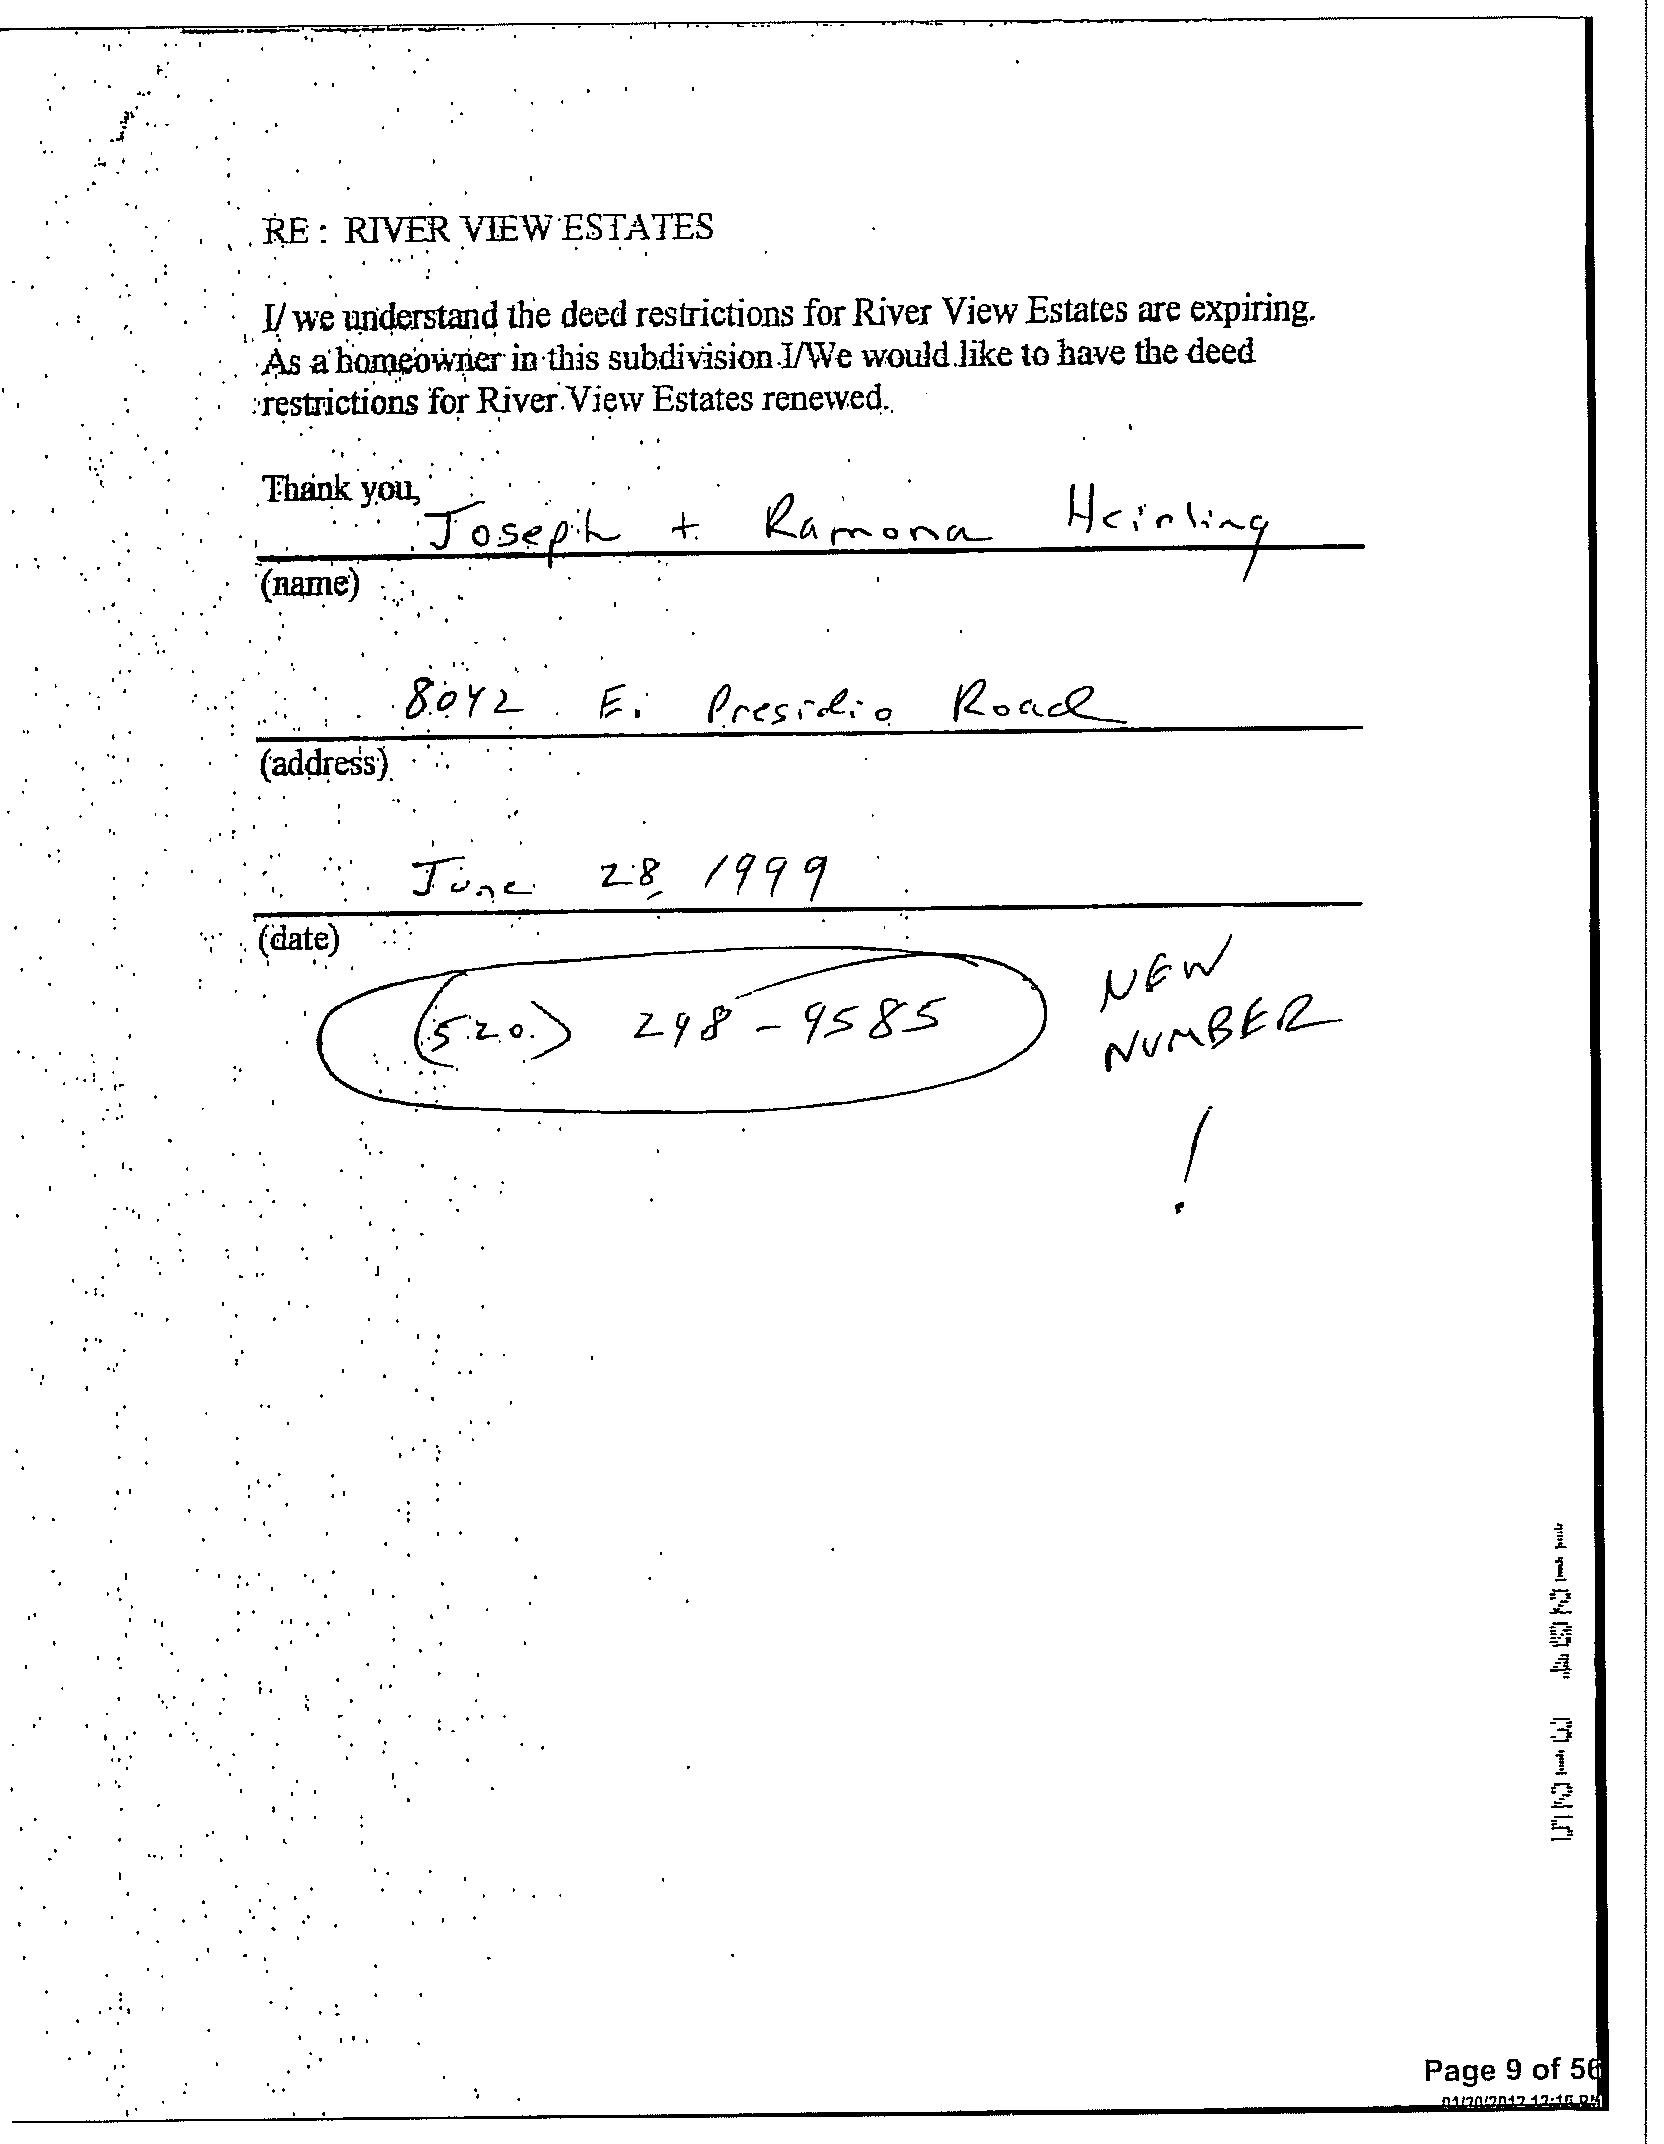 RE: RIVER VIEW ESTATES
I/ we understand the deed restrictions for River View Estates are expiring.
As a homeowner in this subdivision I/We would like to have the deed
restrictions for River View Estates renewed.
Thank you,
Joseph + Ramona Heinling
(name)
8042 E. Presidio Road
(address)
June 28, 1999
(date)
(520) 298-9585
NEW
NUMBER
!
Page 9 of 56